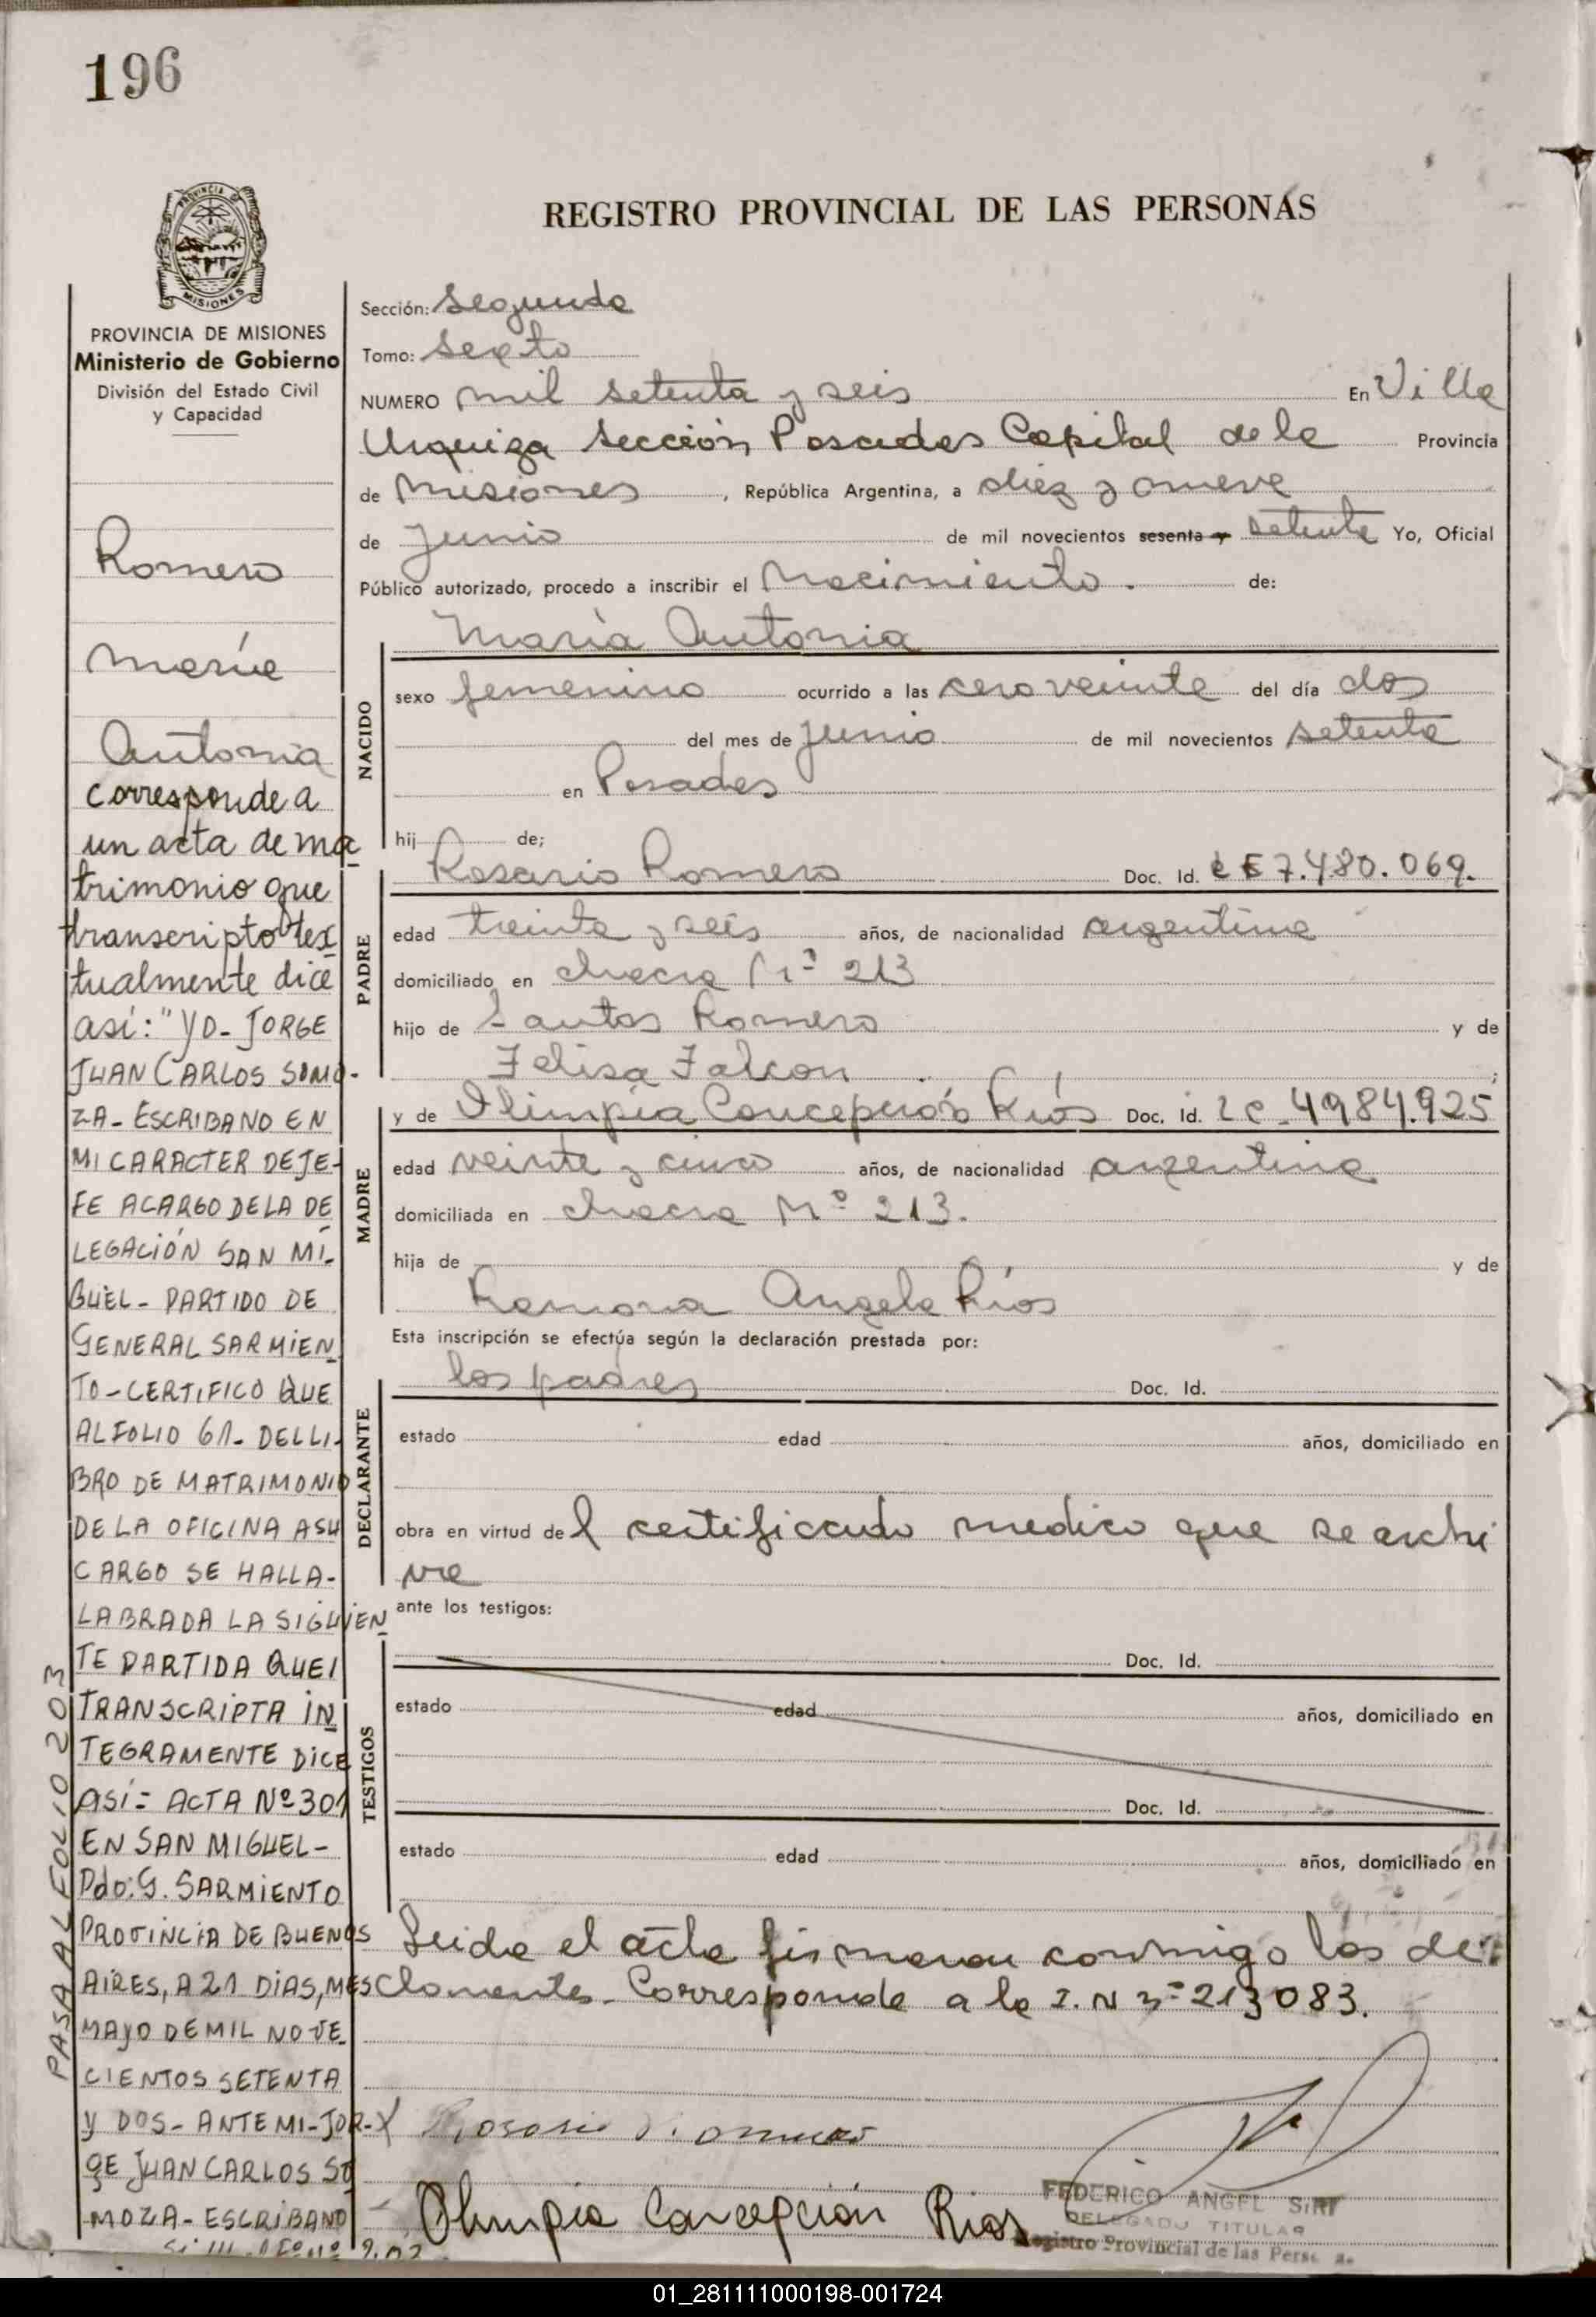 196
PROVINCIA DE MISIONES
REGISTRO PROVINCIAL DE LAS PERSONAS
PROVINCIA DE MISIONES
Ministerio de Gobierno
División del Estado Civil
y Capacidad
Romero
María
Antonia
corresponde a
un acta de ma
trimonio que
transcripto tex
tualmente dice
así: "YO - JORGE
JUAN CARLOS SOMO-
ZA - ESCRIBANO EN
MI CARACTER DE JE-
FE A CARGO DE LA DE
LEGACIÓN SAN MI-
GUEL - PARTIDO DE
GENERAL SARMIEN
TO - CERTIFICO QUE
AL FOLIO 61 - DEL LI-
BRO DE MATRIMONIO
DE LA OFICINA A SU
CARGO SE HALLA -
LABRADA LA SIGUIEN
TE PARTIDA QUE
TRANSCRIPTA IN
TEGRAMENTE DICE
ASÍ = ACTA Nº 301
EN SAN MIGUEL -
Pdo: G. SARMIENTO
PROVINCIA DE BUENOS
AIRES, A 21 DÍAS, MES
MAYO DE MIL NOVE
CIENTOS SETENTA
Y DOS - ANTE MI - JOR-
GE JUAN CARLOS SO
MOZA - ESCRIBANO
PASA AL FOLIO 203
Sección: Segunda
Tomo: Sexto
NUMERO mil setenta y seis En Villa
Urquiza Sección Posadas Capital de la Provincia
de Misiones, República Argentina, a diez y nueve
de Junio de mil novecientos sesenta y setenta Yo, Oficial
Público autorizado, procedo a inscribir el Nacimiento. de:
NACIDO
María Antonia
sexo femenino ocurrido a las cero veinte del día dos
del mes de Junio de mil novecientos setenta
en Posadas
hij de;
PADRE
Rosario Romero Doc. Id. 7.480.069.
edad treinta y seis años, de nacionalidad argentina
domiciliado en chacra Nº 213
hijo de Santos Romero y de
Felisa Falcon ;
MADRE
y de Olimpia Concepción Ríos Doc. Id. LC. 4984.925
edad veinte y cinco años, de nacionalidad argentina
domiciliada en chacra Nº 213.
hija de y de
Ramona Angela Ríos
Esta inscripción se efectúa según la declaración prestada por:
DECLARANTE
los padres Doc. Id.
estado edad años, domiciliado en
obra en virtud del certificado medico que se archi
va
ante los testigos:
TESTIGOS
Doc. Id.
estado edad años, domiciliado en
Doc. Id.
estado edad años, domiciliado en
Leida el acta firmaron conmigo los de
clarantes. Corresponde a la I. Nº 213083.
X Rosario Romero
Olimpia Concepción Rios
FEDERICO ANGEL SIRI
DELEGADO TITULAR
Registro Provincial de las Perso
01_281111000198-001724